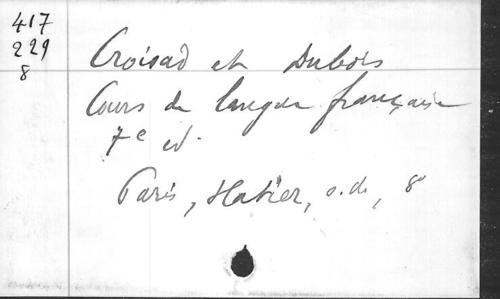 417
229
8
Croisad et Dubois
Cours de langue française
7e ed.
Paris, Hatier, s.d., 8